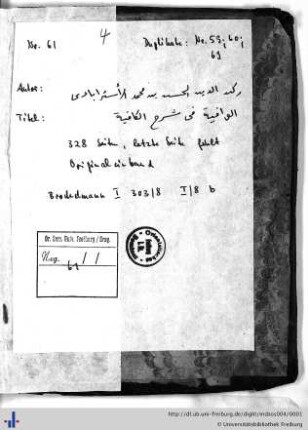 Nr. 61
4
Duplikate: Nr. 59; 60;
69
Autor: ركن الدين الحسن بن محمد الأستراباذى
Titel: الوافية فى شرح الكافية
328 Seiten, letzte Seite fehlt
Originaleinband
Brockelmann I 303/8 I/8 b
Or. Sem. Univ. Freiburg / Brsg.
61 / /
http://dl.ub.uni-freiburg.de/diglit/msbos004/0001
© Universitätsbibliothek Freiburg